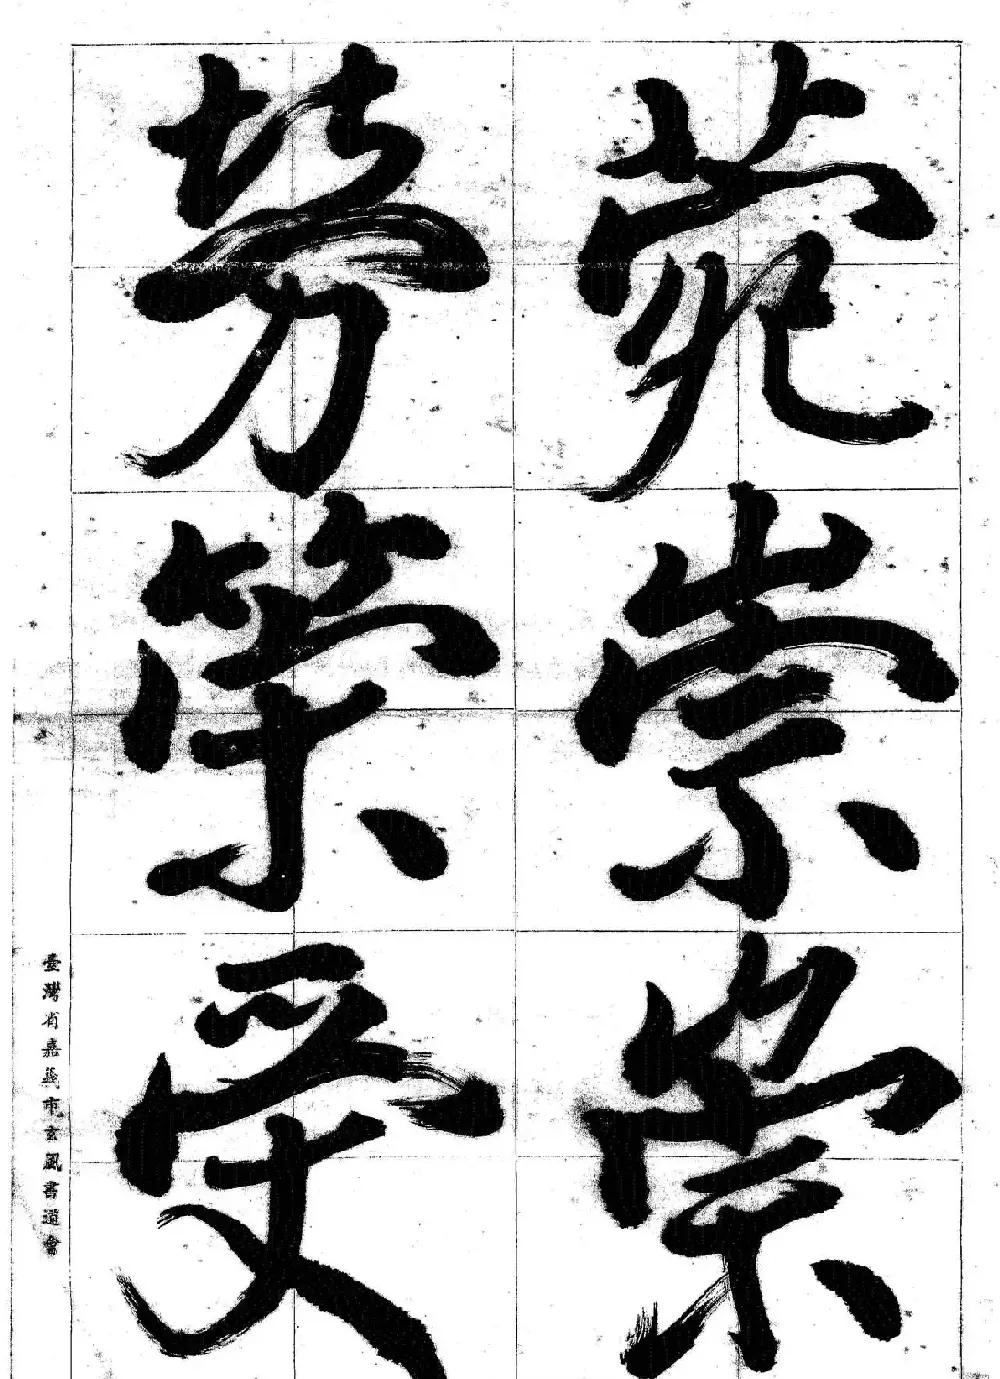 菀崇崇
勞榮受
臺灣省嘉義市玄風書道會